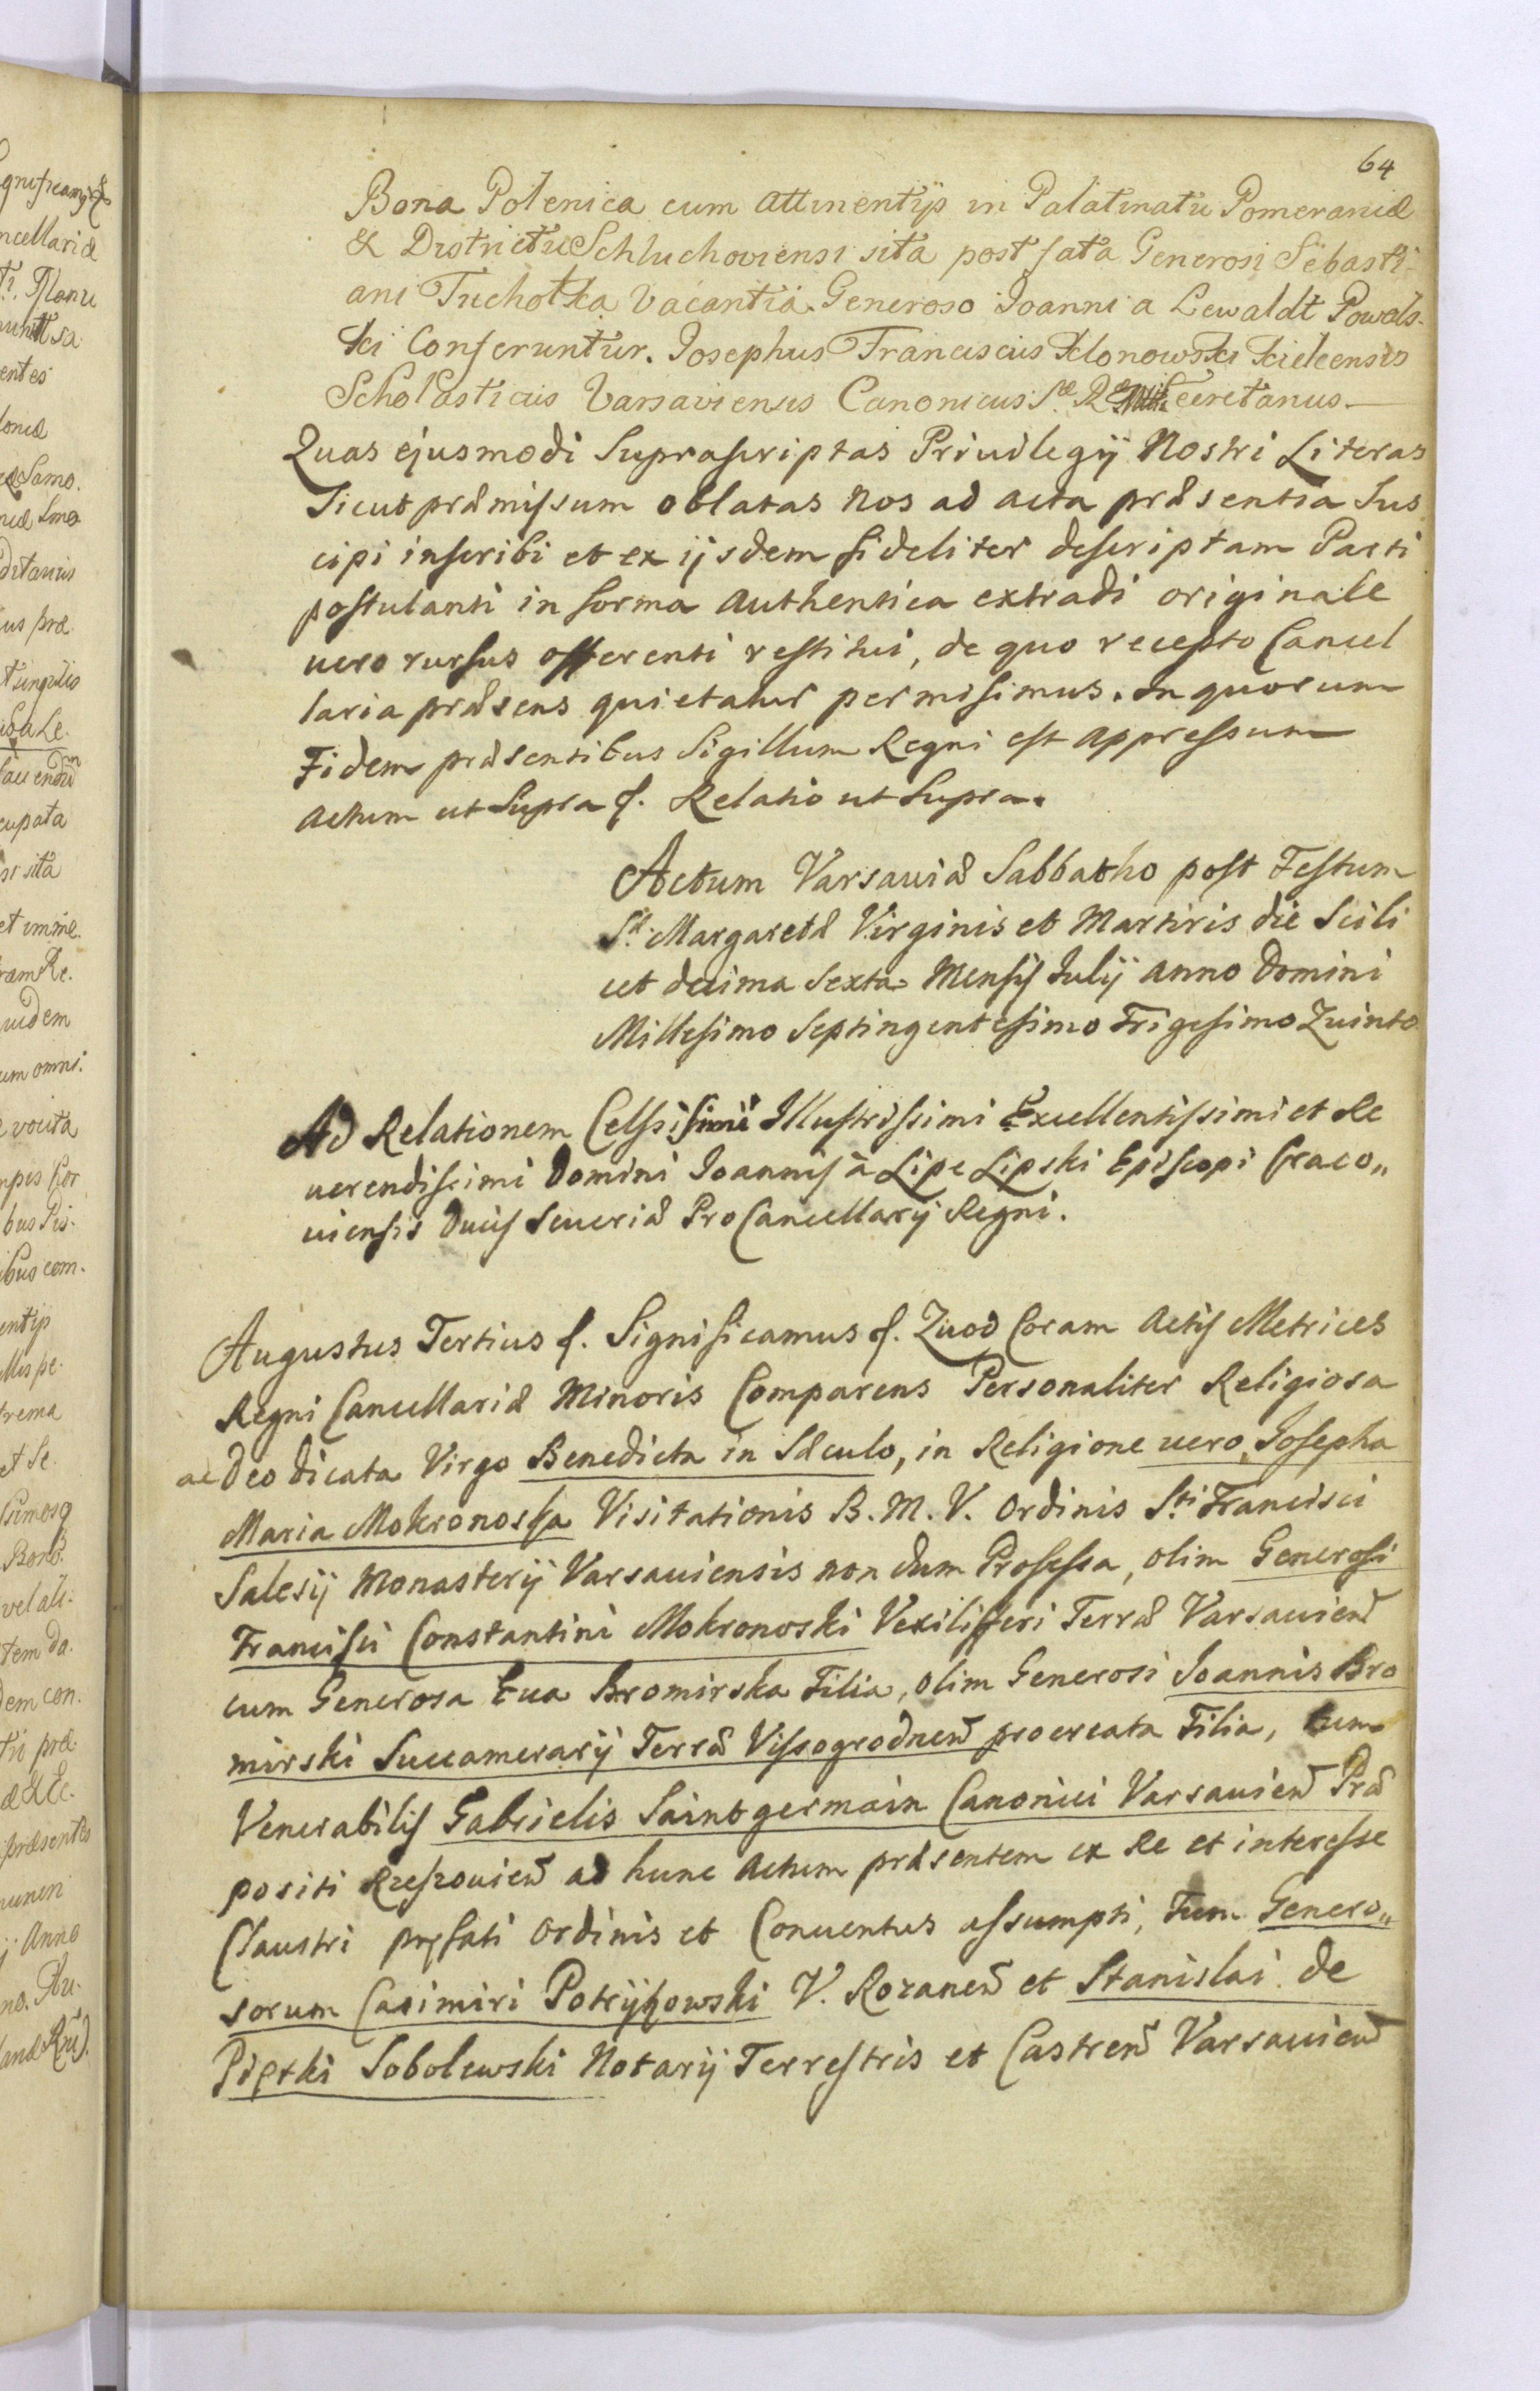 64
Bona Polenica cum attinentijs in Palatinatu Pomeraniæ
& Districtu Schluchoviensi sita post fata Generosi Sebasti-
ani Tucholka vacantia Generoso Joanni a Lewaldt Powals-
ki Conferuntur. Josephus Franciscus Klonowski Kielcensis
Scholasticus Varsaviensis Canonicus Sæ Ræ Mttis Secretarius
Quas ejusmodi Suprascriptas Priuilegij Nostri Literas
Sicut præmissum oblatas Nos ad acta præsentia Sus
cipi inscribi et ex ijsdem fideliter descriptam Parti
postulanti in forma authentica extradi originale
uero rursus offerenti restitui, de quo recepto Cancel
laria præsens quietatur permisimus. In quorum
Fidem præsentibus Sigillum Regni est appressum
Actum ut Supra f. Relatio ut Supra.
Actum Varsauiæ Sabbatho post Festum
Stæ Margaretæ Virginis et Martiris die Scili
cet decima Sexta Mensis Julij Anno Domini
Millesimo Septingentesimo Trigesimo Quinto
Ad Relationem Celsissimi Illustrissimi Excellentissimi et Re
uerendissimi Domini Joannis à Lipe Lipski Episcopi Craco„
uiensis Ducis Seueriæ ProCancellarij Regni.
Augustus Tertius f. Significamus f. Quod Coram Actis Metrices
Regni Cancellariæ Minoris Comparens Personaliter Religiosa
ac Deo dicata Virgo Benedicta in Sæculo, in Religione uero Josepha
Maria Mokronoska Visitationis B. M. V. Ordinis Sti Francisci
Salesij Monasterij Varsauiensis non dum Professa, olim Generosi
Francisci Constantini Mokronoski Vexiliferi Terræ Varsauien
cum Generosa Eua Bromirska Filia, olim Generosi Joannis Bro
mirski Succamerarij Terræ Vissogrodnen procreata Filia, tum
Venerabilis Gabrielis Saintgermain Canonici Varsauien Præ
positi Rzeszouien ad hunc Actum præsentem ex Re et interesse
Claustri pręfati Ordinis et Conuentus assumpti, Tum Genero„
sorum Casimiri Potrykowski V. Rozanen et Stanislai de
Piętki Sobolewski Notarij Terrestris et Castren Varsauien